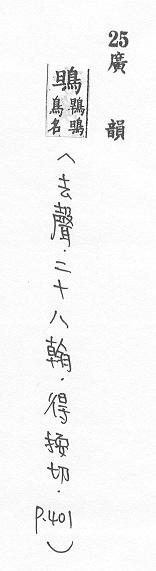 25 廣韻
鴠鶡鴠鳥名
(去聲.二十八翰.得按切.P.401)